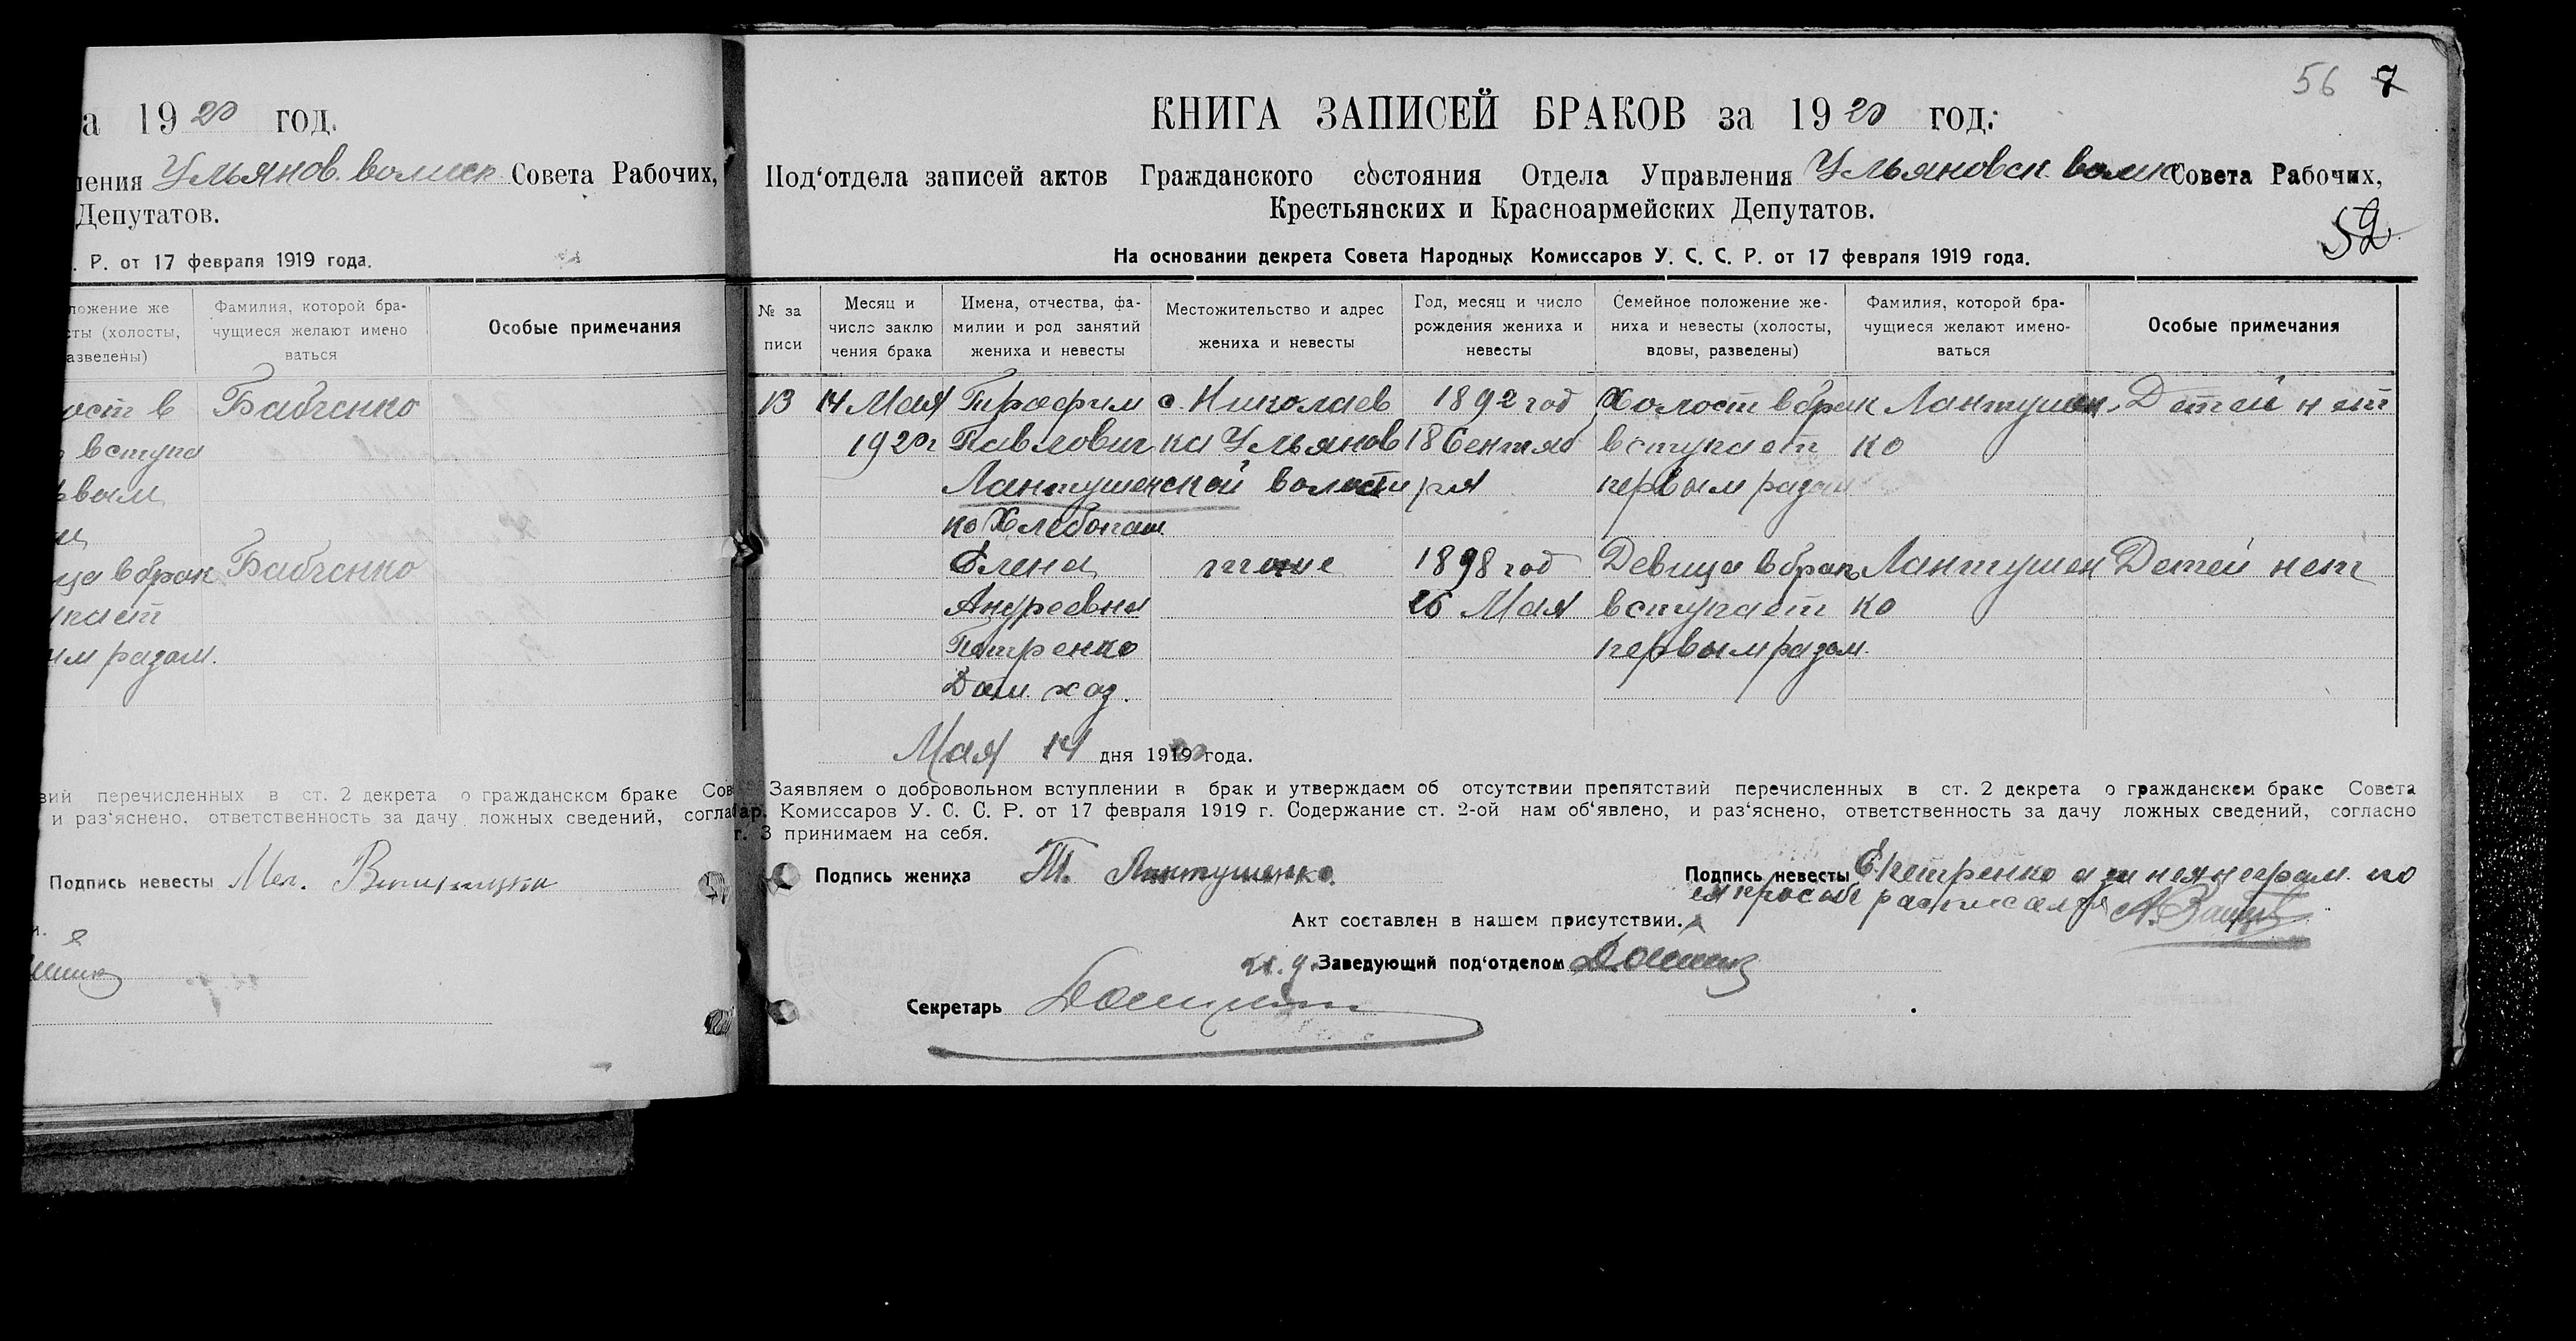 а 1920 год.
ления Ульянов. волисп Совета Рабочих,
Депутатов.
. Р. от 17 февраля 1919 года.
ложение же
сты (холосты,
азведены)
Фамилия, которой бра-
чущиеся желают имено
ваться
Особые примечания
ост в Бабченко
вступа
рвым
ца в брак Бабченко
пает
ым разом.
вий перечисленных в ст. 2 декрета о гражданском браке Сов
и раз'яснено, ответственность за дачу ложных сведений, согла
Подпись невесты
56 7
КНИГА ЗАПИСЕЙ БРАКОВ за 1920 год.
Под'отдела записей актов Гражданского состояния Отдела Управления Ульяновск. волис Совета Рабочих,
Крестьянских и Красноармейских Депутатов.
52
На основании декрета Совета Народных Комиссаров У. С. С. Р. от 17 февраля 1919 года.
№ за
писи
Месяц и
число заклю
чения брака
Имена, отчества, фа-
милии и род занятий
жениха и невесты
Местожительство и адрес
жениха и невесты
Год, месяц и число
рождения жениха и
невесты
Семейное положение же-
ниха и невесты (холосты,
вдовы, разведены)
Фамилия, которой бра-
чущиеся желают имено-
ваться
Особые примечания
13 14 Мая Трофим с. Николаев 1892 год Холост в брак Лантушен- Детей нет
1920 г Павлович ка Ульянов 18 Сентяб вступает ко
Лантушен ской волости ря первым разом
ко Хлебопаш.
Елена 1898 год Девица в брак Лантушен Детей нет
Андреевна 26 Мая вступает ко
Петренко первым разом.
Дом. хоз.
Мая 14 дня 1920 года.
Заявляем о добровольном вступлении в брак и утверждаем об отсутствии препятствий перечисленных в ст. 2 декрета о гражданском браке Совета
ар. Комиссаров У. С. С. Р. от 17 февраля 1919 г. Содержание ст. 2-ой нам об'явлено, и раз'яснено, ответственность за дачу ложных сведений, согласно
г. 3 принимаем на себя.
Подпись жениха Т. Лантушенко. Подпись невесты Е. Петренко а за нея неграм. по
ея просьбе расписался
Акт составлен в нашем присутствии.
и. д. Заведующий под'отделом
Секретарь